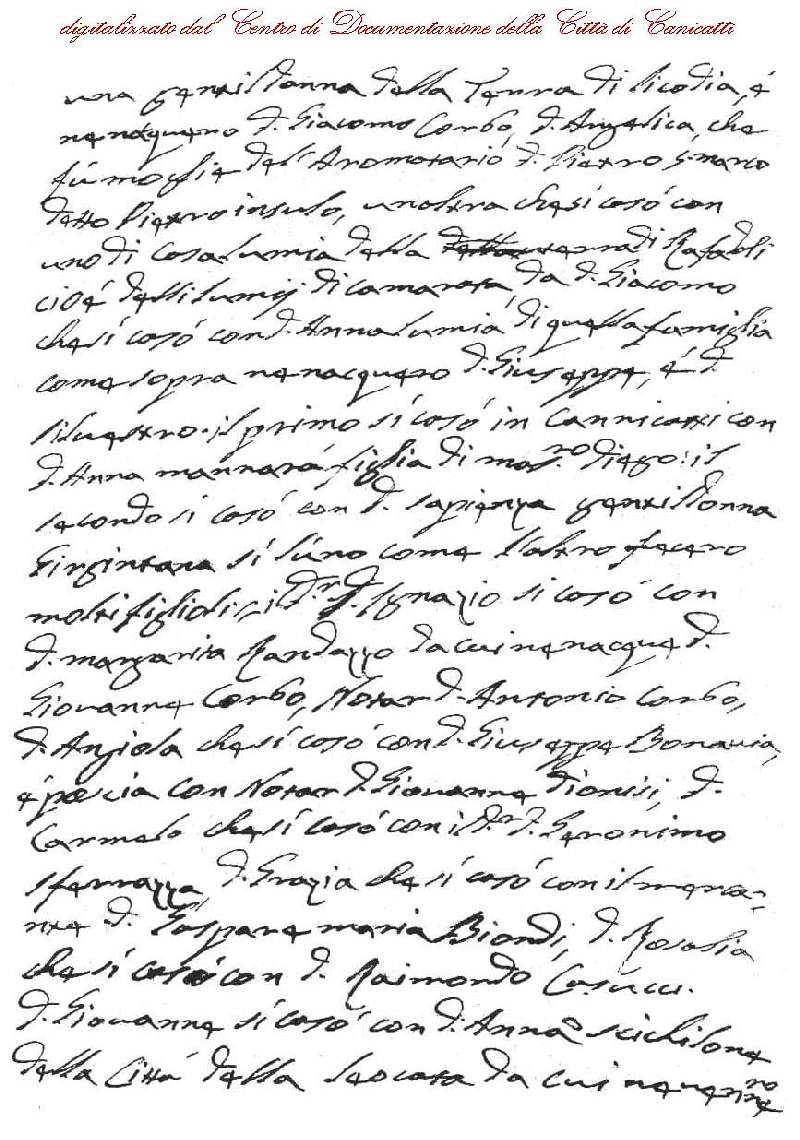 digitalizzato dal Centro di Documentazione della Città di Canicattì
una gentildonna della Terra di licodia, é
nenacquero d. Giacomo Corbo, d. Angelica, che
fú moglie dell'Aromatario d. Pietro S. marco
detto Pietro insulo, unaltra chesi casó con
uno di casa lumia della della terra di Rafadoli
cioé dellilumij di camarata, da d. Giacomo
chesi casó con d. Anna lumia di quella famiglia
come sopra nenacquero d. Giuseppe, é d.
silvestro. il primo si casó in Cannicatti con
d. Anna mannará figlia di mas.ro diego: il
secondo si casó con d. sapienza gentildonna
Girgintana si l'uno come l'altro fecero
molti figlioli; il Dr. d. Ignazio si casó con
d. margarita Randazzo dacui nenacque d.
Giovanne Corbo, Notar d. Antonio Corbo,
d. Angiola chesi casó con d. Giuseppe Bonavia,
é poscia con Notar d. Giovanne Dionisi, d.
Carmelo chesi casó con il Dr. d. Geronimo
sferrazza d. Grazia che si casó con il merca=
nte d. Gaspare maria Biondi, d. Rosalia
che si casó con d. Raimondo Casucci.
d. Giovanne si casó con d. Anna scichilone
della Cittá della leocata da cui nevenne